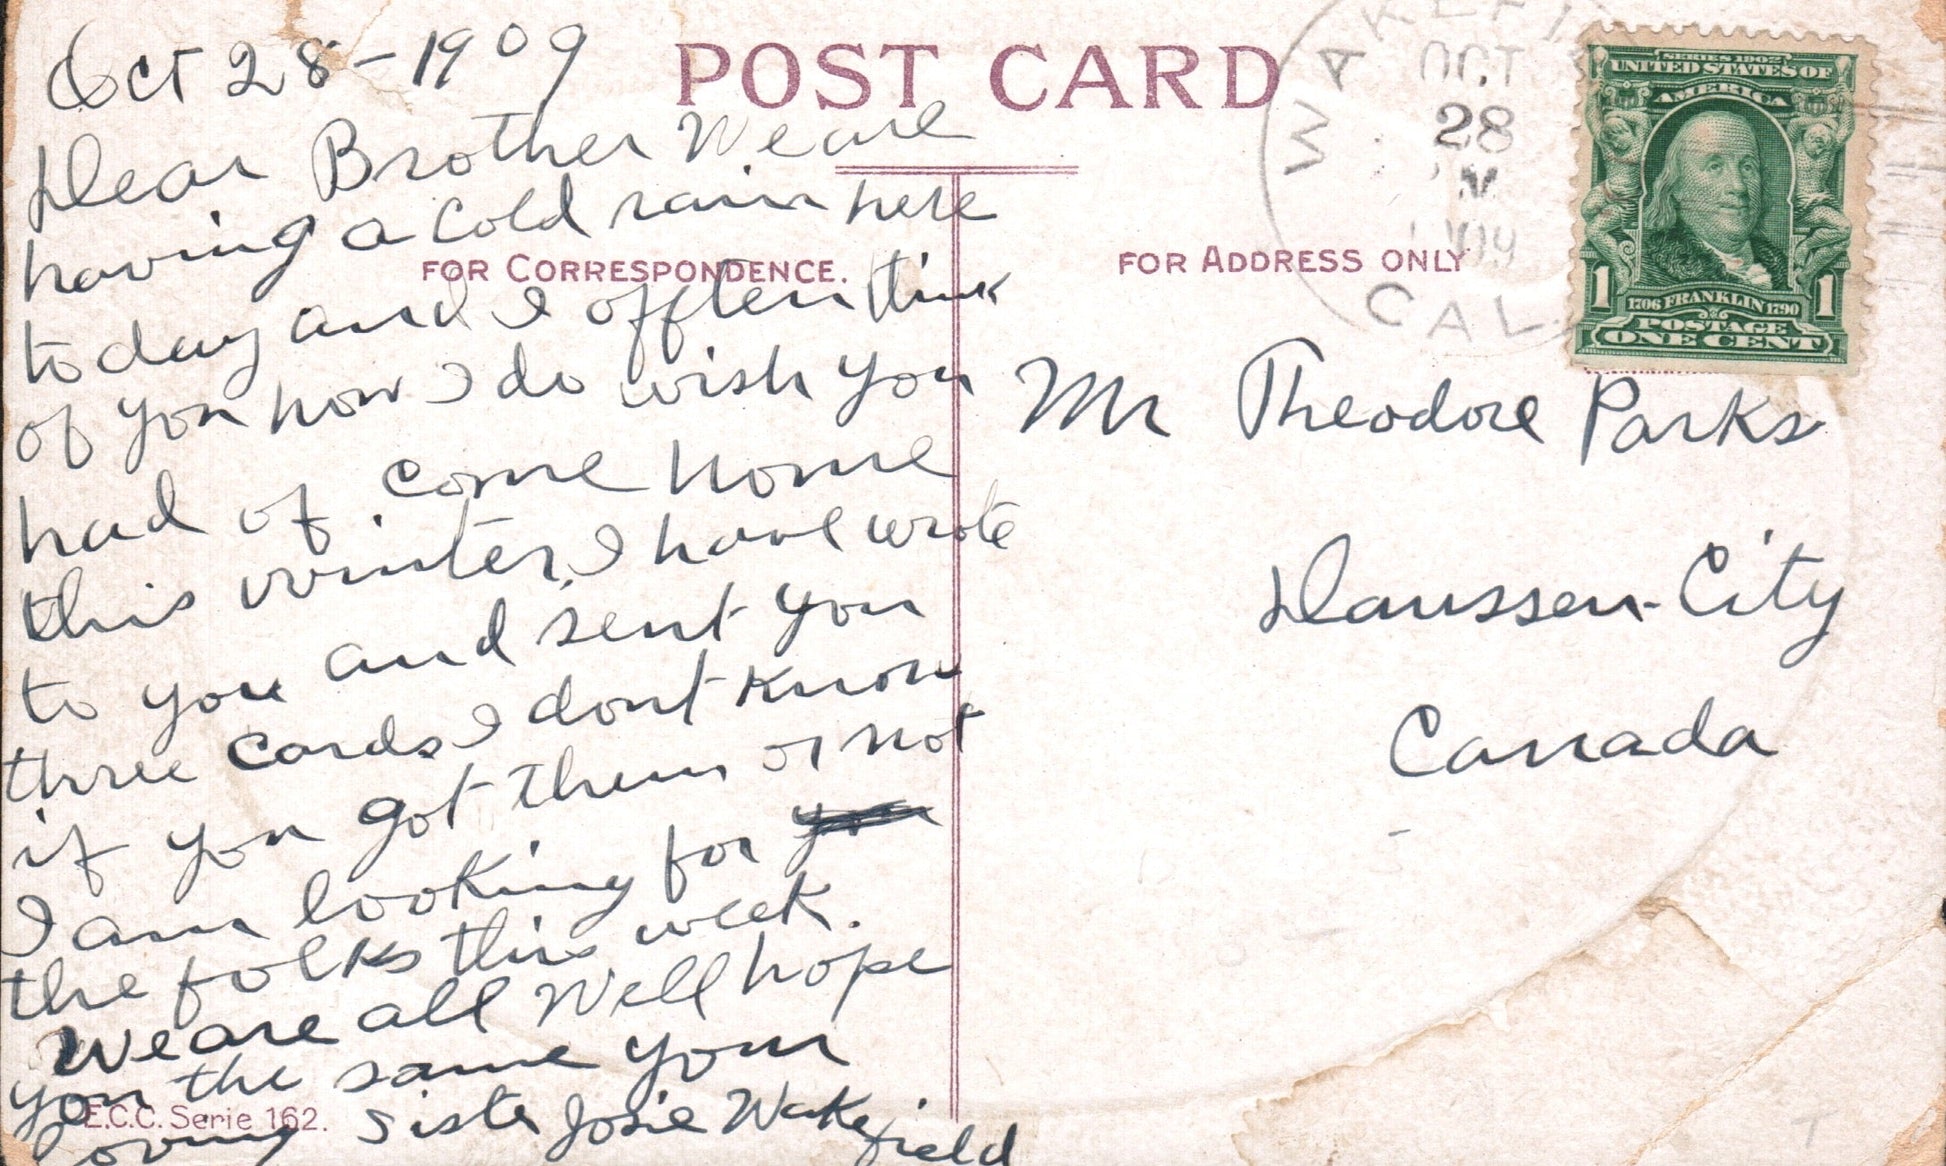 Oct 28-1909
Dear Brother We are
having a cold rain here
to day and I offten think
of you how I do wish you
had of come home
this winter, I have wrote
to you and sent you
three cards I dont know
if you got them or not
I am looking for you
the folks this week.
We are all well hope
you the same your
loving sister Josie Wakefield
POST CARD
FOR CORRESPONDENCE.
FOR ADDRESS ONLY
WAKEFI
OCT
28
M
CAL.
SERIES 1902
UNITED STATES OF
AMERICA
1 1706 FRANKLIN 1790 1
POSTAGE
ONE CENT
Mr Theodore Parks
Daussen-City
Canada
E.C.C. Serie 162.